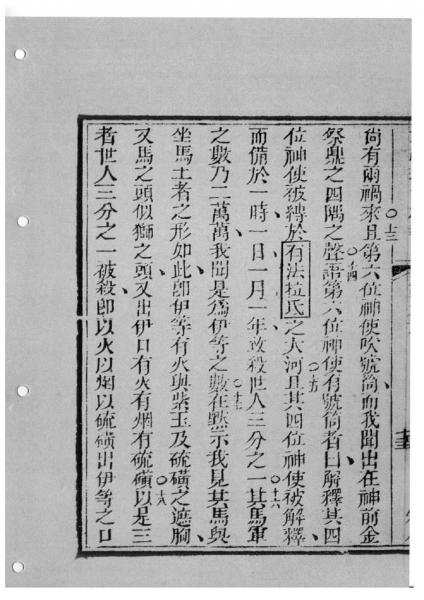 尚有兩禍來○十三且第六位神使吹號筒而我聞出在神前金
祭鼎之四隅之聲○十四語第六位神使有號筒者曰解釋其四
位神使被縛於有法拉氐之大河○十五且其四位神使被解釋
而備於一時一日一月一年致殺世人三分之一○十六其馬軍
之數乃二萬萬我聞是爲伊等之數○十七在默示我見其馬與
坐馬上者之形如此即伊等有火與紫玉及硫磺之遮胸
又馬之頭似獅之頭又出伊口有火有烟有硫磺○十八以是三
者世人三分之一被殺即以火以烟以硫磺出伊等之口